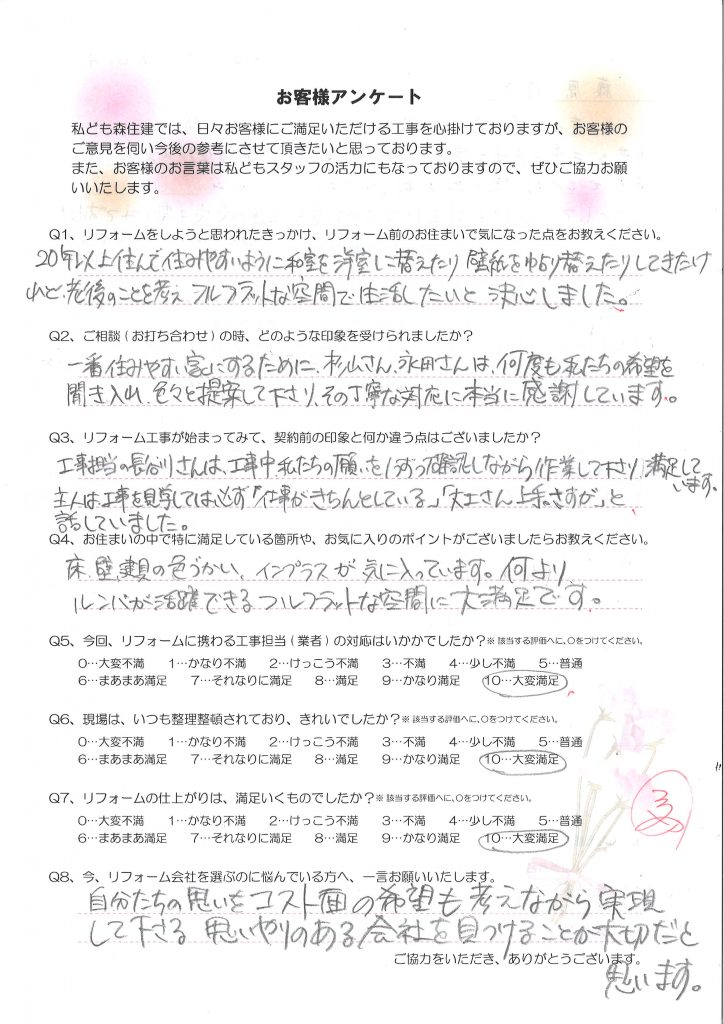 お客様アンケート
私ども森住建では、日々お客様にご満足いただける工事を心掛けておりますが、お客様の
ご意見を伺い今後の参考にさせて頂きたいと思っております。
また、お客様のお言葉は私どもスタッフの活力にもなっておりますので、ぜひご協力お願
いいたします。
Q1、リフォームをしようと思われたきっかけ、リフォーム前のお住まいで気になった点をお教えください。
20年以上住んで住みやすいように和室を洋室に替えたり 壁紙をはり替えたりしてきたけ
れど、老後のことを考え フルフラットな空間で生活したいと 決心しました。
Q2、ご相談(お打ち合わせ)の時、どのような印象を受けられましたか?
一番住みやすい家にするために、杉山さん、永田さんは、何度も私たちの希望を
聞き入れ、色々と提案して下さり、その丁寧な対応に本当に感謝しています。
Q3、リフォーム工事が始まってみて、契約前の印象と何か違う点はございましたか?
工事担当の長谷川さんは、工事中、私たちの願いを1つずつ確認しながら作業して下さり 満足して
います。
主人は工事を見学しては必ず「仕事がきちんとしている。」「大工さん上手。さすが」と
話していました。
Q4、お住まいの中で特に満足している箇所や、お気に入りのポイントがございましたらお教えください。
床、壁、建具の色づかい、インプラスが気に入っています。何より
ルンバが活躍できるフルフラットな空間に大満足です。
Q5、今回、リフォームに携わる工事担当(業者)の対応はいかかでしたか?※該当する評価へに、○をつけてください。
0…大変不満 1…かなり不満 2…けっこう不満 3…不満 4…少し不満 5…普通
6…まあまあ満足 7…それなりに満足 8…満足 9…かなり満足 10…大変満足
Q6、現場は、いつも整理整頓されており、きれいでしたか?※該当する評価へに、○をつけてください。
0…大変不満 1…かなり不満 2…けっこう不満 3…不満 4…少し不満 5…普通
6…まあまあ満足 7…それなりに満足 8…満足 9…かなり満足 10…大変満足
Q7、リフォームの仕上がりは、満足いくものでしたか?※該当する評価へに、○をつけてください。
0…大変不満 1…かなり不満 2…けっこう不満 3…不満 4…少し不満 5…普通
6…まあまあ満足 7…それなりに満足 8…満足 9…かなり満足 10…大変満足
Q8、今、リフォーム会社を選ぶのに悩んでいる方へ、一言お願いいたします。
自分たちの思いをコスト面の希望も考えながら実現
して下さる 思いやりのある会社を見つけることが大切だと
思います。
ご協力をいただき、ありがとうございます。